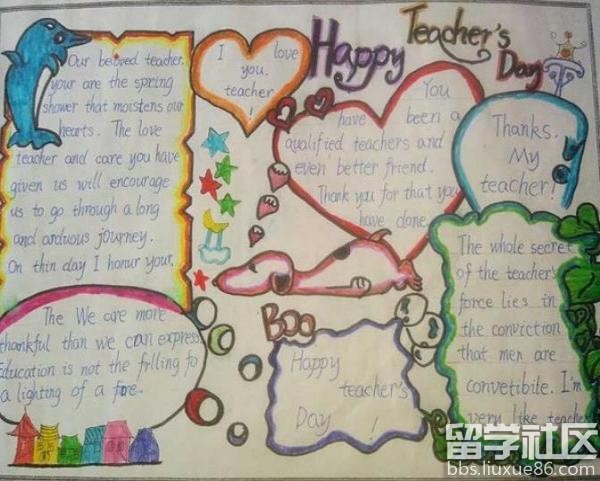 Happy Teacher's Day
Our beloved teacher,
your are the spring
shower that moistens our
hearts. The love
teacher and care you have
given us will encourage
us to go through a long
and arduous journey.
On thin day I honur your.
I love
you,
teacher
!
You
have been a
qualified teachers and
even better friend.
Thank you for that you
have done
Thanks.
My
teacher!
The We are more
thankful than we can express
Education is not the filling fo
a lighting of a fire.
Boo
Happy
teacher's
Day !
The whole secret
of the teacher's
force lies in
the conviction
that men are
convetibite. I'm
very like teacher
留学社区
bbs.liuxue86.com